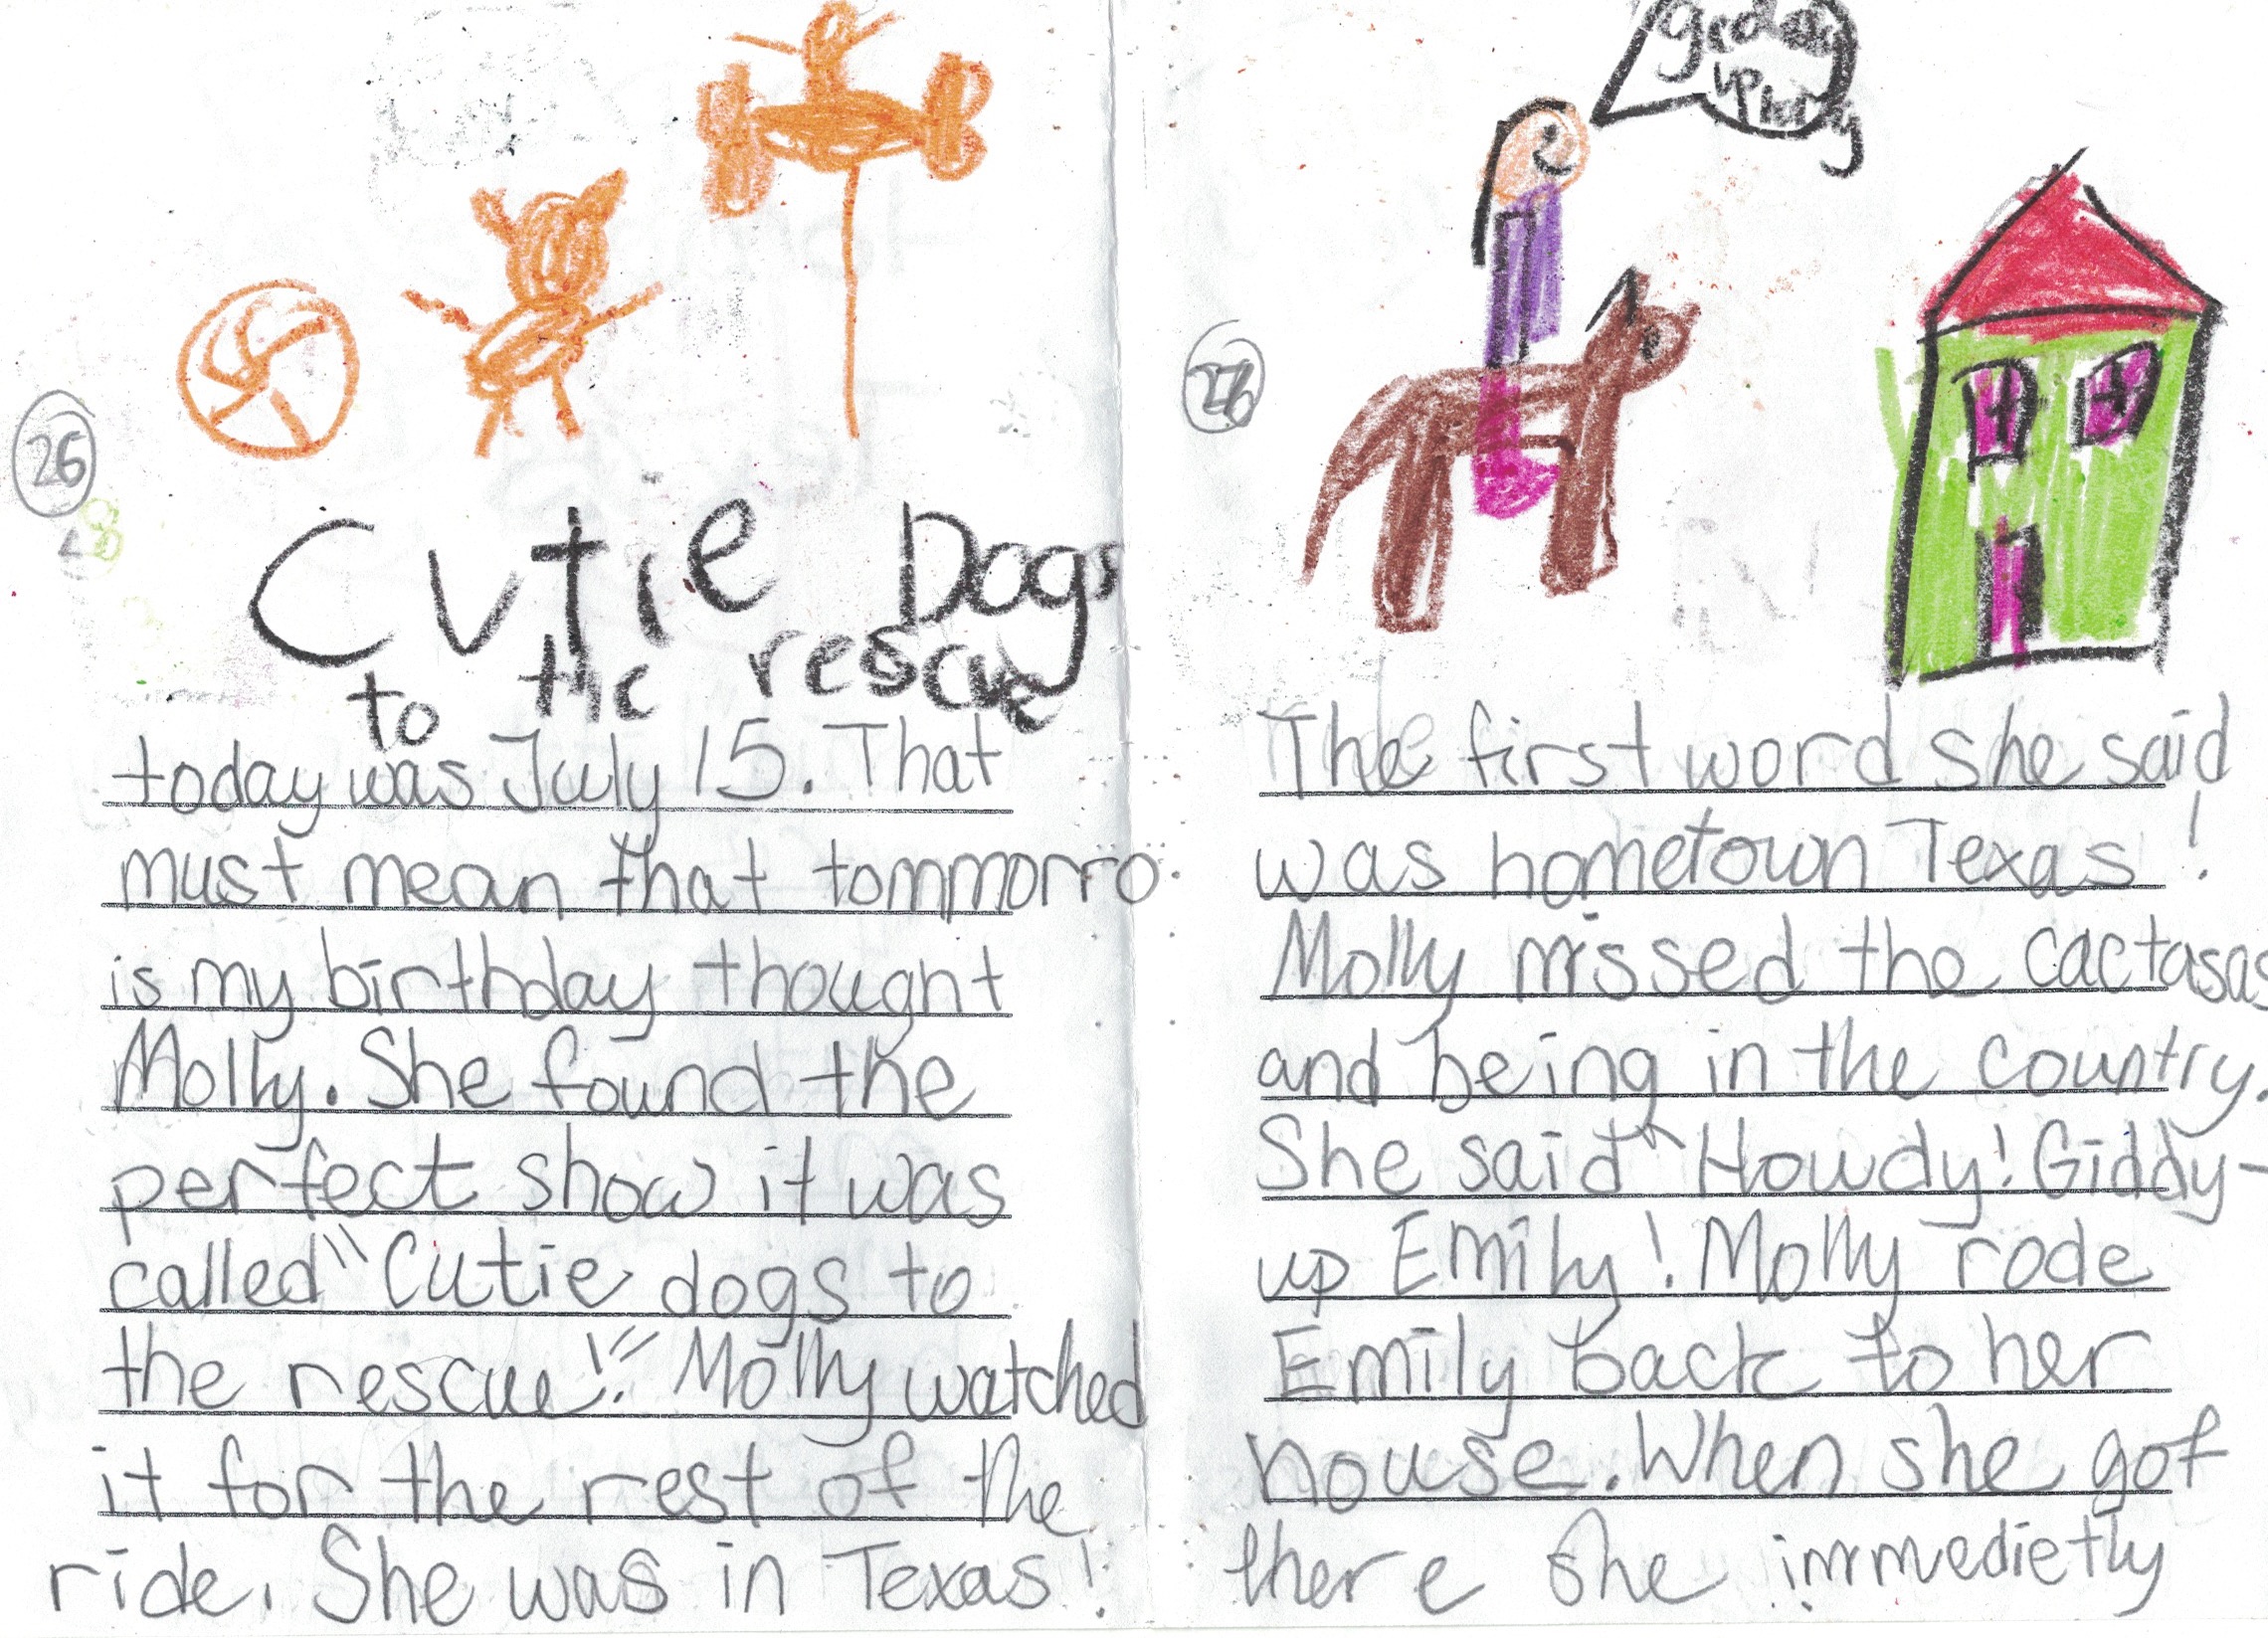 26
Cutie Dogs
to the rescue
today was July 15. That
must mean that tommorro
is my birthday thought
Molly. She found the
perfect show it was
called "Cutie dogs to
the rescue!" Molly watched
it for the rest of the
ride. She was in Texas!
up
The first word she said
was hometown Texas!
Molly missed the cactasas
and being in the country.
She said "Howdy! Giddy-
up Emily! Molly rode
Emily back to her
house. When she got
there she immedietly